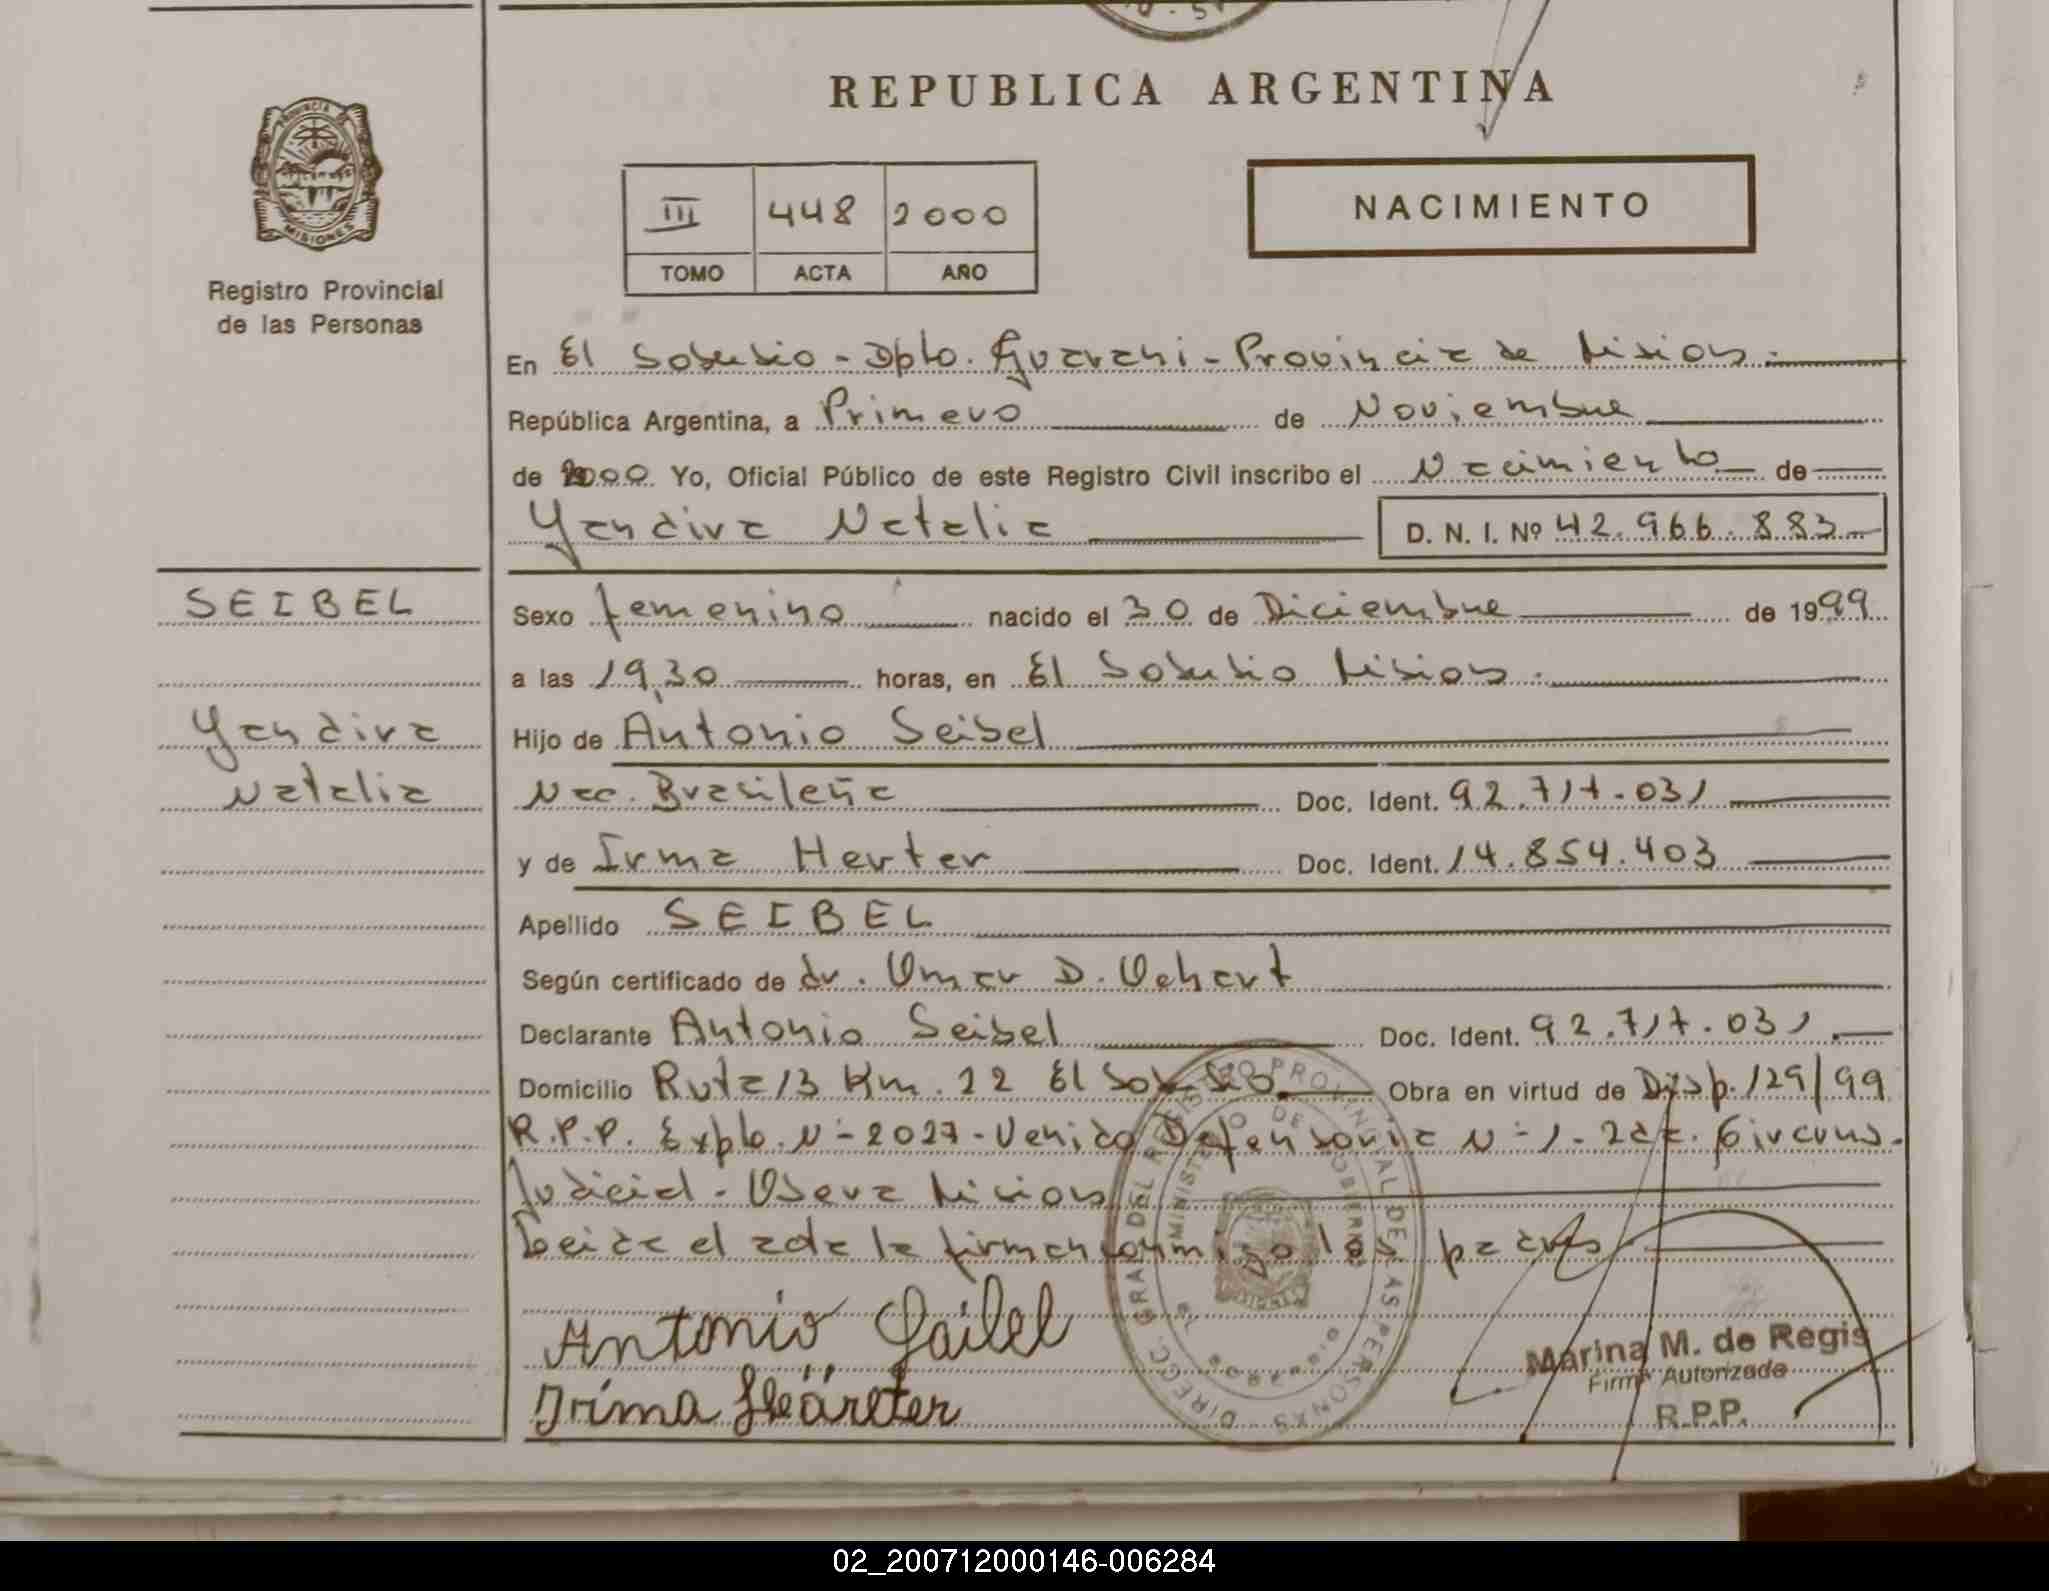 REPUBLICA ARGENTINA
PROVINCIA
MISIONES
Registro Provincial
de las Personas
III 448 2000
TOMO ACTA AÑO
NACIMIENTO
En El Soberbio - Dpto. Guarani - Provincia de Misiones.
República Argentina, a Primero de Noviembre
de 2000 Yo, Oficial Público de este Registro Civil inscribo el Nacimiento de
Yandira Natalia D. N. I. Nº 42.966.883
SEIBEL
Yandira
Natalia
Sexo femenino nacido el 30 de Diciembre de 1999
a las 19,30 horas, en El Soberbio Misiones.
Hijo de Antonio Seibel
Nac. Brasileña Doc. Ident. 92.717.031
y de Irma Herter Doc. Ident. 14.854.403
Apellido SEIBEL
Según certificado de dr. Omar D. Ochart
Declarante Antonio Seibel Doc. Ident. 92.717.031.
Domicilio Ruta 13 Km. 22 El Soberbio. Obra en virtud de Disp. 129/99
R.P.P. Expte. N-2027-Venido Defensoria N-1-2da. Circuns.
Judicial - Obera Misiones
Leida el acta la firman conmigo los padres.
Antonio Saibel
Irima Heärter
DIRECC. GRAL. DEL REGISTRO PROVINCIAL DE LAS PERSONAS
MINISTERIO DE GOBIERNO
Marina M. de Regis
Firma Autorizada
R.P.P.
02_200712000146-006284